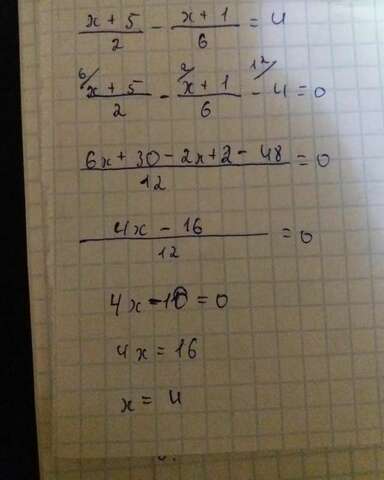 x + 5 / 2 - x + 1 / 6 = 4
6/ x + 5 / 2 - 2/ x + 1 / 6 - 12/ 4 = 0
6x + 30 - 2x + 2 - 48 / 12 = 0
4x - 16 / 12 = 0
4x - 16 = 0
4x = 16
x = 4